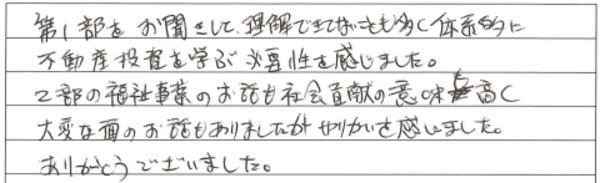 第1部をお聞きして、理解できてないことも多く体系的に
不動産投資を学ぶ必要性を感じました。
2部の福祉事業のお話も社会貢献の意味も高く
大変な面のお話もありましたがやりがいを感じました。
ありがとうございました。